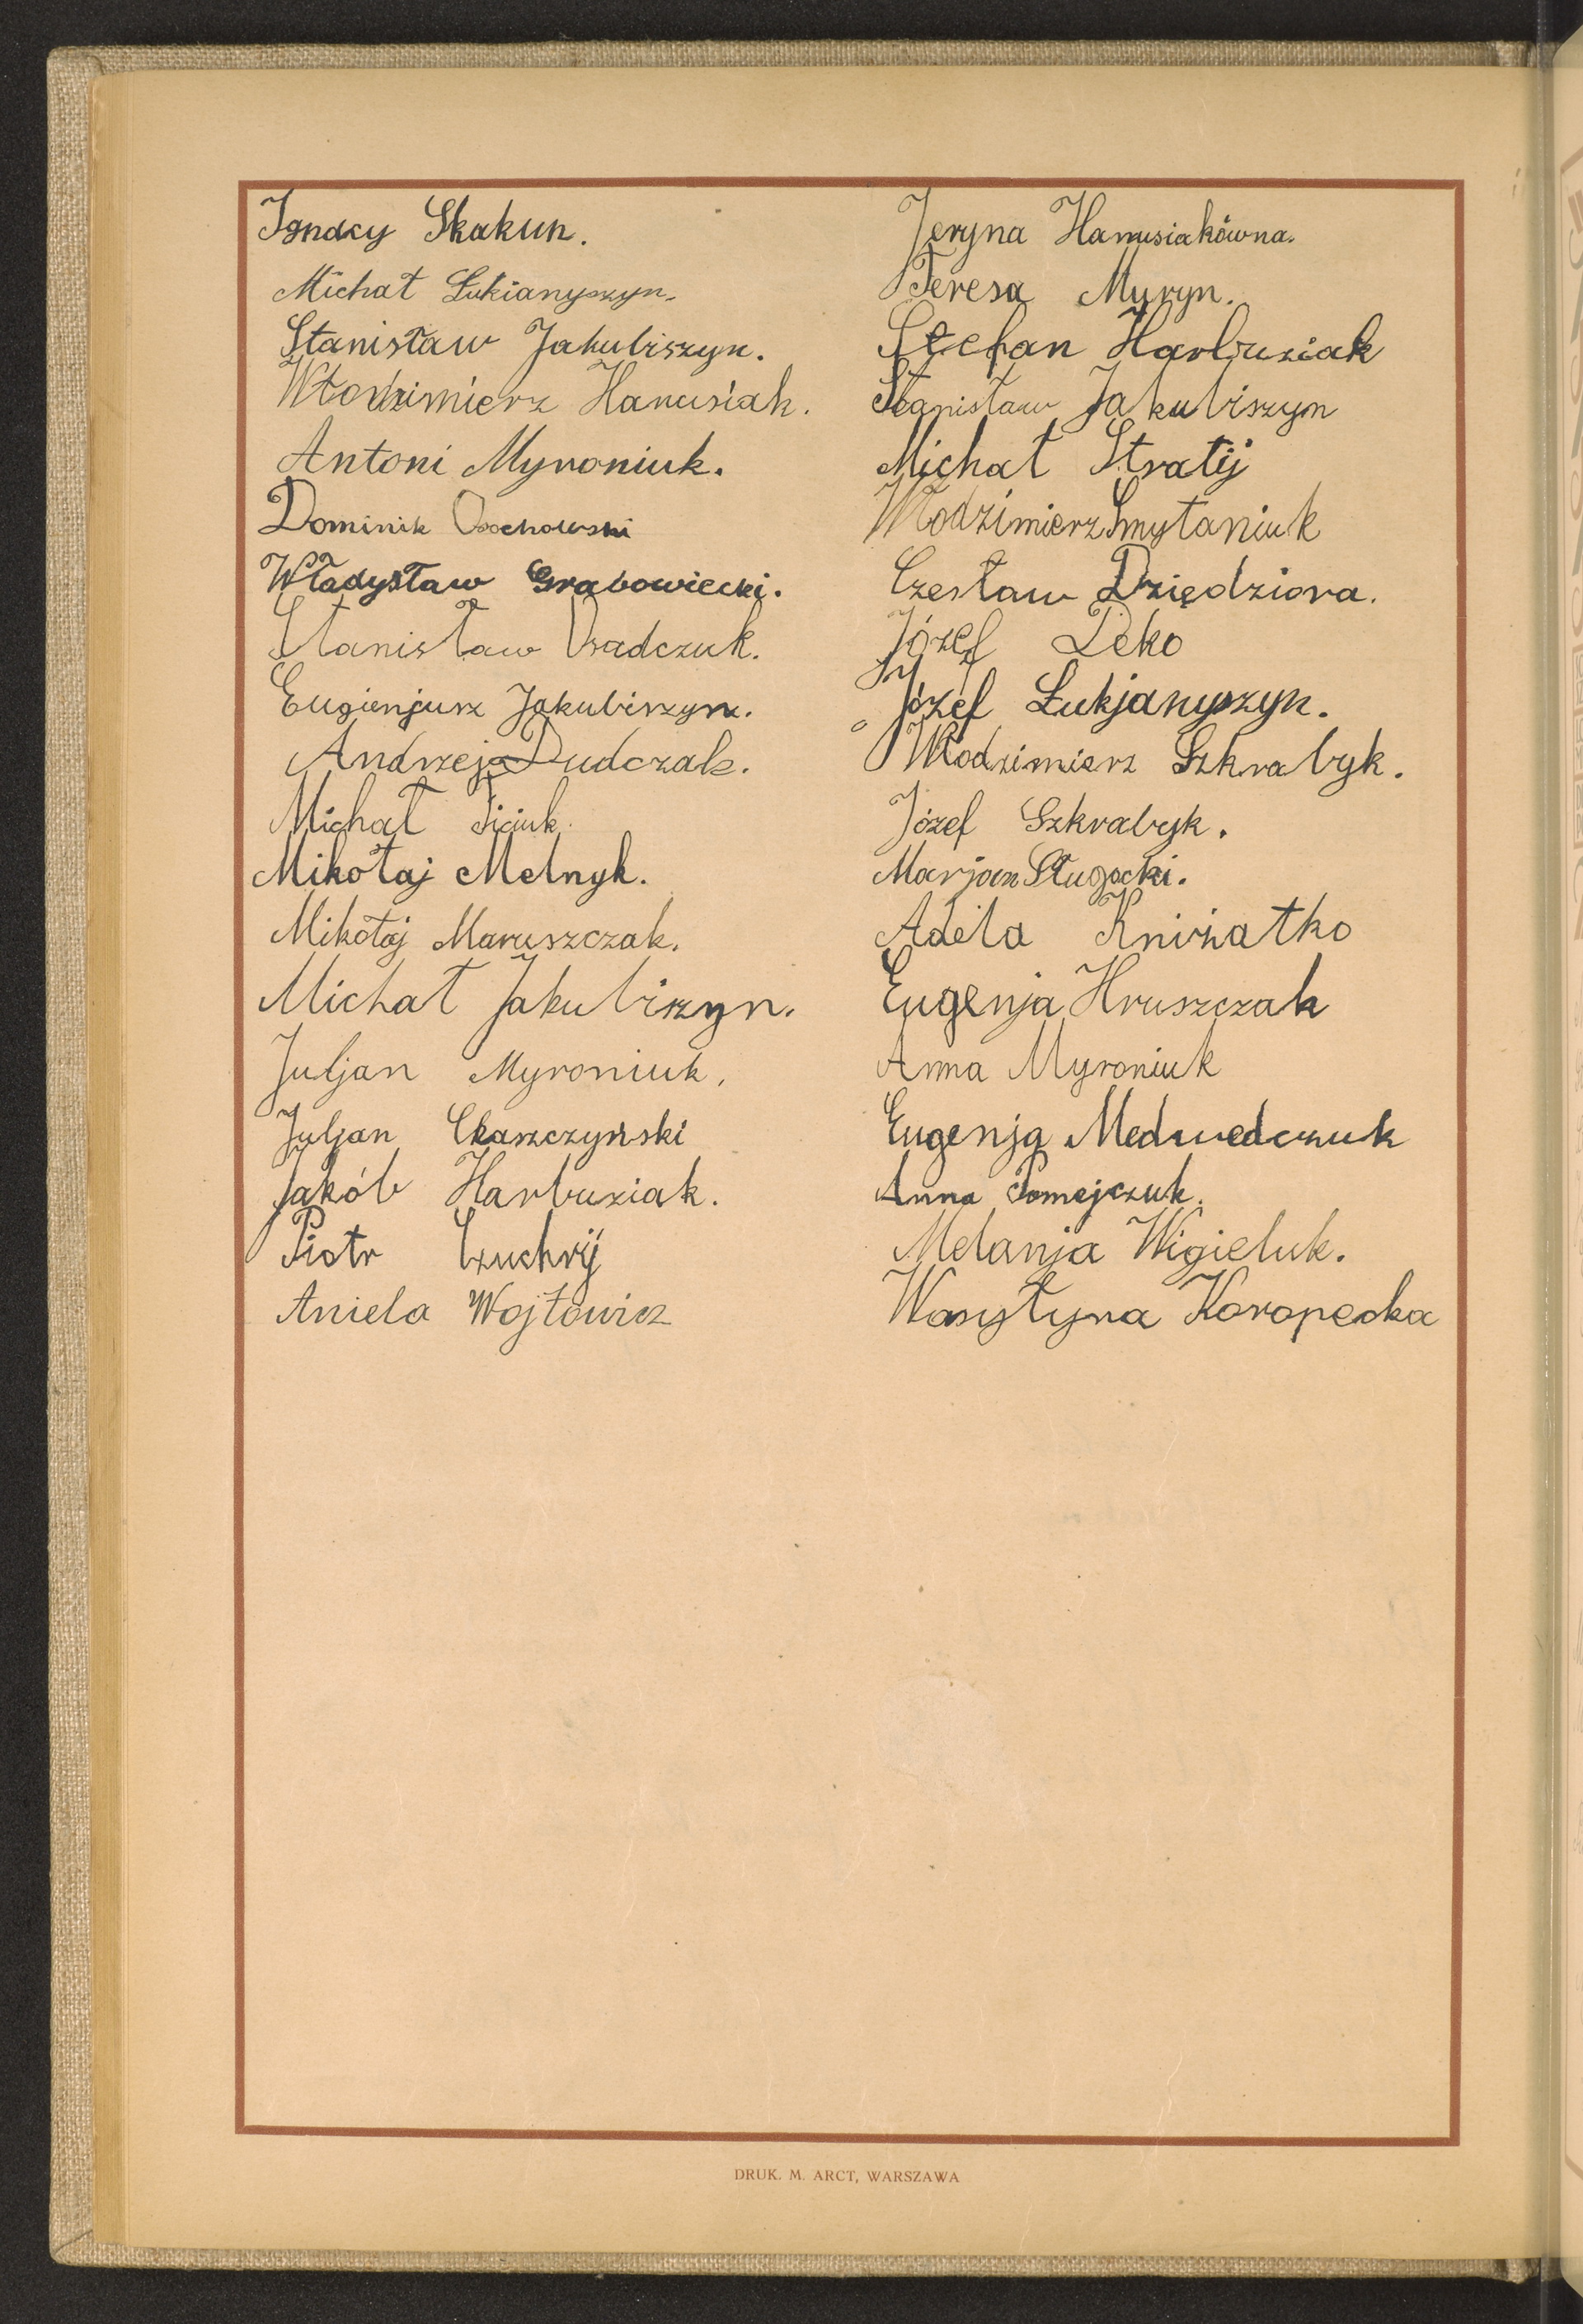 Ignacy Skakun.
Michał Łukianyszyn.
Stanisław Jakubiszyn.
Włodzimierz Hanusiak.
Antoni Myroniuk.
Dominik
Władysław Grabowiecki.
Stanisław Osadczuk.
Eugienjusz Jakubiszyn.
Andrzej Dudczak.
Michał
Mikołaj Melnyk.
Mikołaj Maruszczak.
Michał Jakubiszyn.
Juljan Myroniuk.
Juljan
Jakób Harbuziak.
Piotr Czuchrij
Aniela Wojtowicz
Jeryna Hanusiakówna.
Teresa Myryn.
Stefan Harbuziak
Stanisław Jakubiszyn
Michał Stratij
Włodzimierz Smytaniuk
Czesław Dziędziora.
Józef Deko
Józef Łukjanyszyn.
Włodzimierz Szkrabyk.
Józef Szkrabyk.
Marjan Sługocki.
Adela Kniżatko
Eugenja Hruszczak
Anna Myroniuk
Eugenja Medwedczuk
Anna Romejczuk.
Melanja Wigieluk.
Wasyłyna Koropecka
DRUK. M. ARCT, WARSZAWA